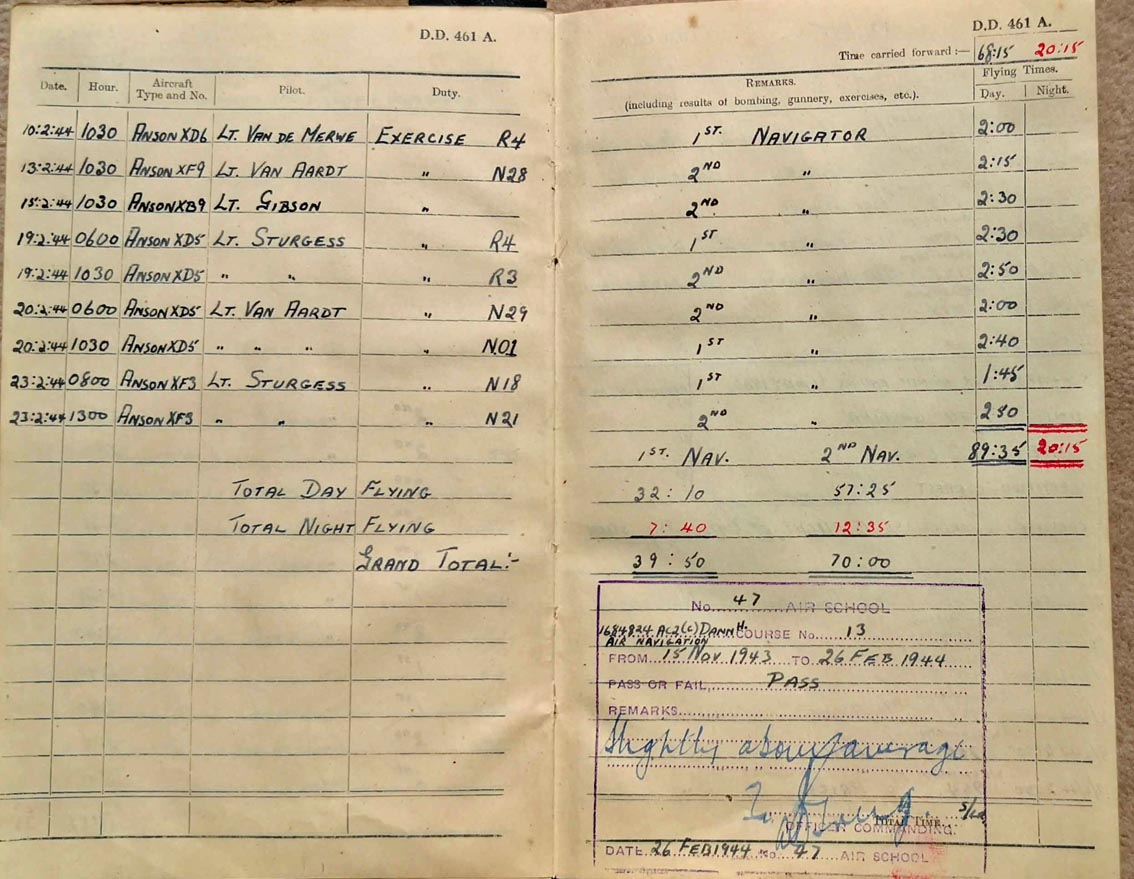 D.D. 461 A.
Date. Hour. Aircraft Type and No. Pilot. Duty.
10:2:44 1030 ANSON XD6 LT. VAN DE MERWE EXERCISE R4
13:2:44 1030 ANSON XF9 LT. VAN AARDT " N28
15:2:44 1030 ANSON XB9 LT. GIBSON "
19:2:44 0600 ANSON XD5 LT. STURGESS " R4
19:2:44 1030 ANSON XD5 " " " R3
20:2:44 0600 ANSON XD5 LT. VAN AARDT " N29
20:2:44 1030 ANSON XD5 " " " " N01
23:2:44 0800 ANSON XF3 LT. STURGESS " N18
23:2:44 1300 ANSON XF3 " " " N21
TOTAL DAY FLYING
TOTAL NIGHT FLYING
GRAND TOTAL:-
D.D. 461 A.
Time carried forward :— 68:15 20:15
REMARKS. Flying Times.
(including results of bombing, gunnery, exercises, etc.). Day. Night.
1ST. NAVIGATOR 2:00
2ND " 2:15
2ND " 2:30
1ST " 2:30
2ND " 2:50
2ND " 2:00
1ST " 2:40
1ST " 1:45
2ND " 2:50
1ST. NAV. 2ND NAV. 89:35 20:15
32:10 57:25
7:40 12:35
39:50 70:00
No. 47 AIR SCHOOL
1684824 AC2(C) DANN H. COURSE No. 13
AIR NAVIGATION
FROM 15 NOV 1943 TO 26 FEB 1944
PASS OR FAIL, PASS
REMARKS
Slightly above average
S/Ldr
TOTAL TIME
OFFICER COMMANDING.
DATE 26 FEB 1944 No 47 AIR SCHOOL